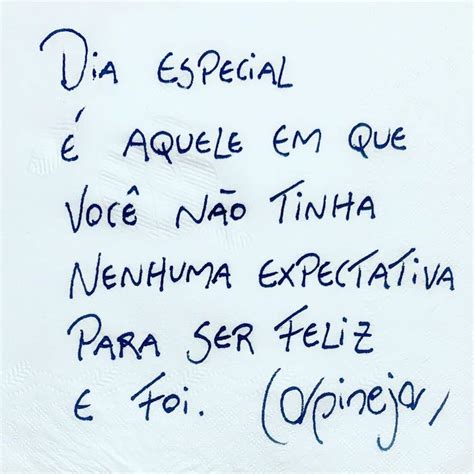 Dia especial
é aquele em que
você não tinha
nenhuma expectativa
para ser feliz
e foi. Carpinejar